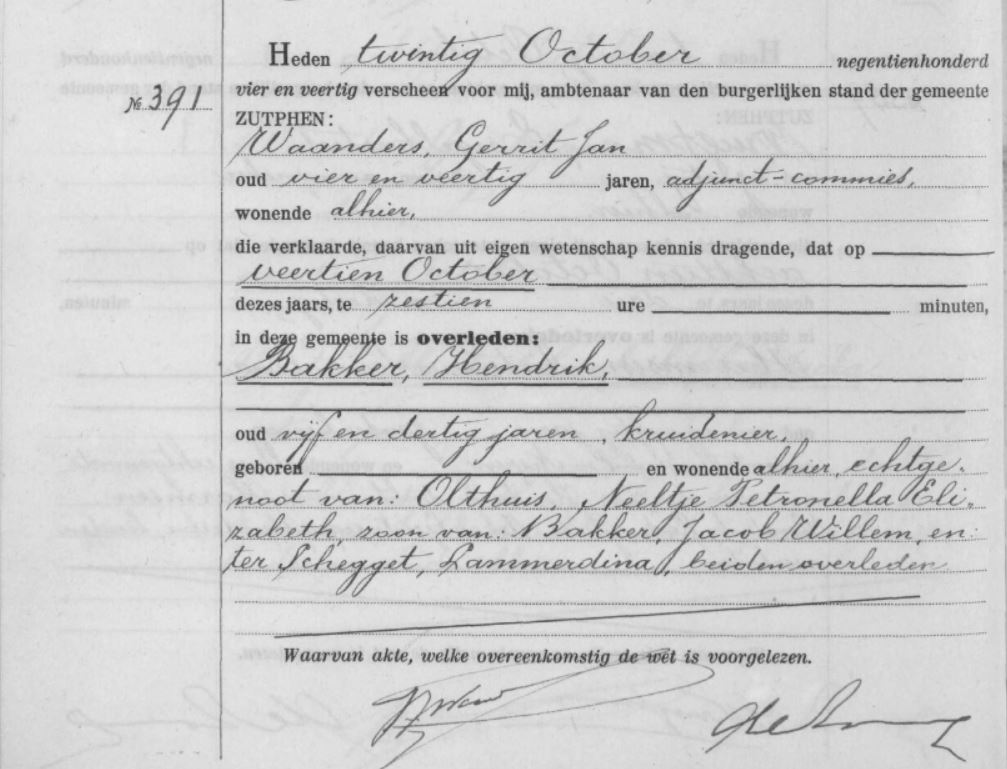 Heden twintig October negentienhonderd
№ 391 vier en veertig verscheen voor mij, ambtenaar van den burgerlijken stand der gemeente
ZUTPHEN:
Waanders, Gerrit Jan
oud vier en veertig jaren, adjunct-commies,
wonende alhier,
die verklaarde, daarvan uit eigen wetenschap kennis dragende, dat op
veertien October
dezes jaars, te zestien ure minuten,
in deze gemeente is overleden:
Bakker, Hendrik,
oud vijf en dertig jaren, kruidenier,
geboren en wonende alhier, echtge-
noot van: Olthuis, Neeltje Petronella Eli-
zabeth, zoon van: Bakker, Jacob Willem, en:
ter Schegget, Lammerdina, beiden overleden
Waarvan akte, welke overeenkomstig de wet is voorgelezen.